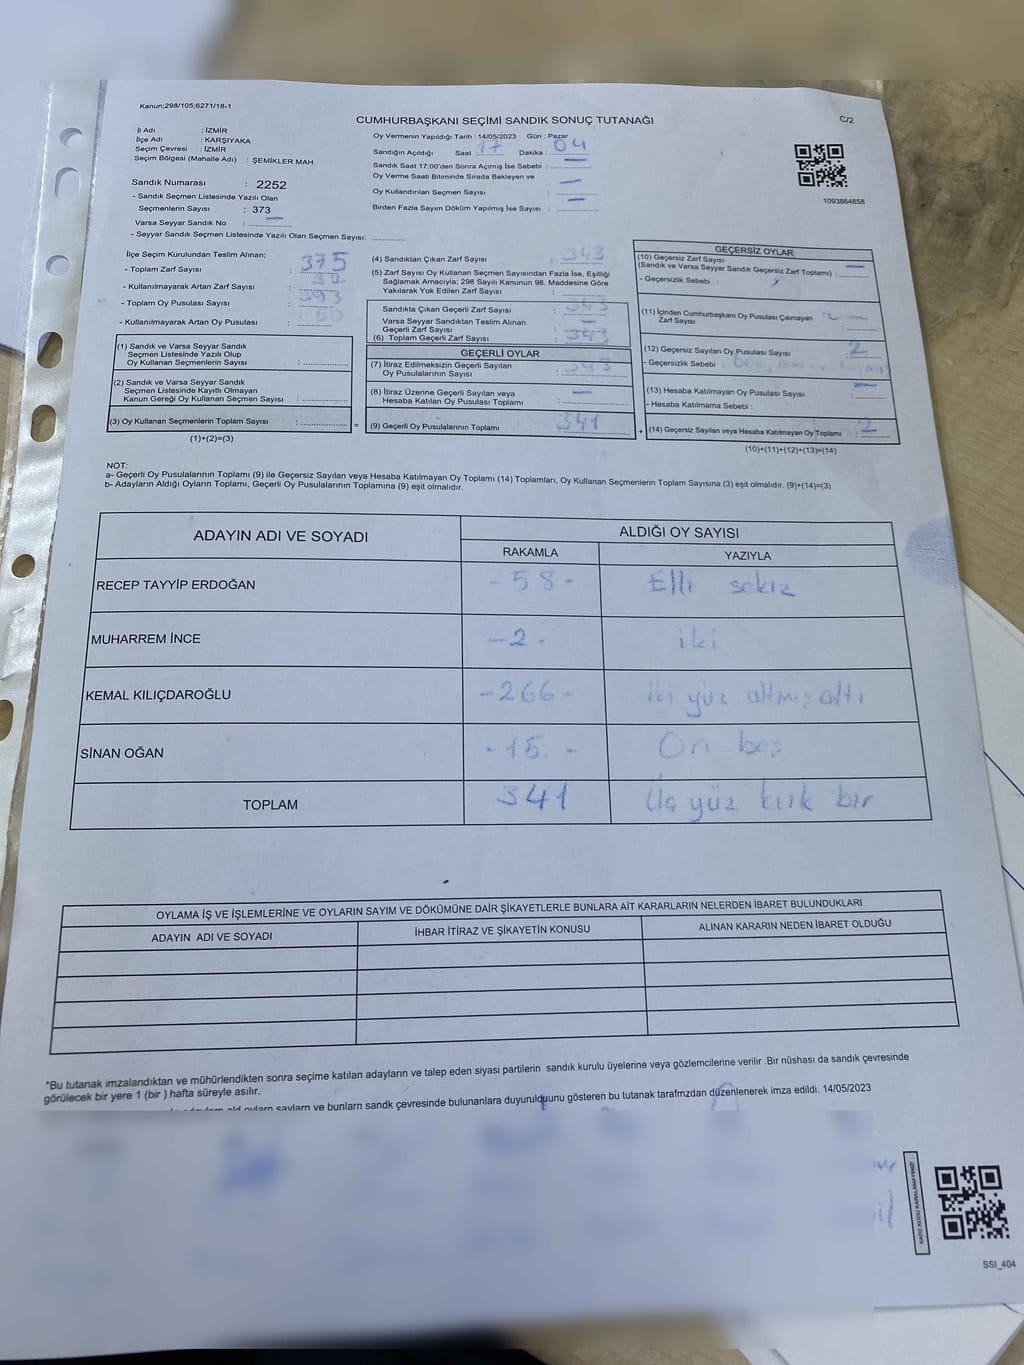 Kanun;298/105;6271/18-1
CUMHURBAŞKANI SEÇİMİ SANDIK SONUÇ TUTANAĞI
C/2
İl Adı : İZMİR
İlçe Adı : KARŞIYAKA
Seçim Çevresi : İZMİR
Seçim Bölgesi (Mahalle Adı) : ŞEMİKLER MAH.
Sandık Numarası : 2252
- Sandık Seçmen Listesinde Yazılı Olan
Seçmenlerin Sayısı : 373
Varsa Seyyar Sandık No : —
- Seyyar Sandık Seçmen Listesinde Yazılı Olan Seçmen Sayısı:
Oy Vermenin Yapıldığı Tarih : 14/05/2023 Gün : Pazar
Sandığın Açıldığı Saat : 17 Dakika : 04
Sandık Saat 17:00'den Sonra Açımış İse Sebebi : —
Oy Verme Saati Bitiminde Sırada Bekleyen ve
Oy Kullandırılan Seçmen Sayısı : —
Birden Fazla Sayım Döküm Yapılmış İse Sayısı : —
1093864858
İlçe Seçim Kurulundan Teslim Alınan;
- Toplam Zarf Sayısı : 375
- Kullanılmayarak Artan Zarf Sayısı : 32
- Toplam Oy Pusulası Sayısı : 393
- Kullanılmayarak Artan Oy Pusulası : 50
(1) Sandık ve Varsa Seyyar Sandık
Seçmen Listesinde Yazılı Olup
Oy Kullanan Seçmenlerin Sayısı :
(2) Sandık ve Varsa Seyyar Sandık
Seçmen Listesinde Kayıtlı Olmayan
Kanun Gereği Oy Kullanan Seçmen Sayısı :
(3) Oy Kullanan Seçmenlerin Toplam Sayısı :
(1)+(2)=(3)
(4) Sandıktan Çıkan Zarf Sayısı : 343
(5) Zarf Sayısı Oy Kullanan Seçmen Sayısından Fazla İse, Eşitliği
Sağlamak Amacıyla; 298 Sayılı Kanunun 98. Maddesine Göre
Yakılarak Yok Edilen Zarf Sayısı :
Sandıkta Çıkan Geçerli Zarf Sayısı : 343
Varsa Seyyar Sandıktan Teslim Alınan
Geçerli Zarf Sayısı : —
(6) Toplam Geçerli Zarf Sayısı : 343
GEÇERLİ OYLAR
(7) İtiraz Edilmeksizin Geçerli Sayılan
Oy Pusulalarının Sayısı :
(8) İtiraz Üzerine Geçerli Sayılan veya
Hesaba Katılan Oy Pusulası Toplamı : —
= (9) Geçerli Oy Pusulalarının Toplamı : 341
GEÇERSİZ OYLAR
(10) Geçersiz Zarf Sayısı
(Sandık ve Varsa Seyyar Sandık Geçersiz Zarf Toplamı) : —
- Geçersizlik Sebebi :
(11) İçinden Cumhurbaşkanı Oy Pusulası Çıkmayan
Zarf Sayısı : —
(12) Geçersiz Sayılan Oy Pusulası Sayısı : 2
- Geçersizlik Sebebi :
(13) Hesaba Katılmayan Oy Pusulası Sayısı : —
- Hesaba Katılmama Sebebi :
+ (14) Geçersiz Sayılan veya Hesaba Katılmayan Oy Toplamı : 2
(10)+(11)+(12)+(13)=(14)
NOT:
a- Geçerli Oy Pusulalarının Toplamı (9) ile Geçersiz Sayılan veya Hesaba Katılmayan Oy Toplamı (14) Toplamları, Oy Kullanan Seçmenlerin Toplam Sayısına (3) eşit olmalıdır. (9)+(14)=(3)
b- Adayların Aldığı Oyların Toplamı, Geçerli Oy Pusulalarının Toplamına (9) eşit olmalıdır.
ADAYIN ADI VE SOYADI
ALDIĞI OY SAYISI
RAKAMLA YAZIYLA
RECEP TAYYİP ERDOĞAN - 58 - Elli sekiz
MUHARREM İNCE - 2 - iki
KEMAL KILIÇDAROĞLU - 266 - iki yüz altmış altı
SİNAN OĞAN - 15 - On beş
TOPLAM 341 Üç yüz kırk bir
OYLAMA İŞ VE İŞLEMLERİNE VE OYLARIN SAYIM VE DÖKÜMÜNE DAİR ŞİKAYETLERLE BUNLARA AİT KARARLARIN NELERDEN İBARET BULUNDUKLARI
ADAYIN ADI VE SOYADI İHBAR İTİRAZ VE ŞİKAYETİN KONUSU ALINAN KARARIN NEDEN İBARET OLDUĞU
*Bu tutanak imzalandıktan ve mühürlendikten sonra seçime katılan adayların ve talep eden siyasi partilerin sandık kurulu üyelerine veya gözlemcilerine verilir .Bir nüshası da sandık çevresinde
görülecek bir yere 1 (bir ) hafta süreyle asılır.
sayların ve bunların sandk çevresinde bulunanlara duyurulduunu gösteren bu tutanak tarafmzdan düzenlenerek imza edildi. 14/05/2023
KARE KODU KARALAMAYINIZ!
SSI_404